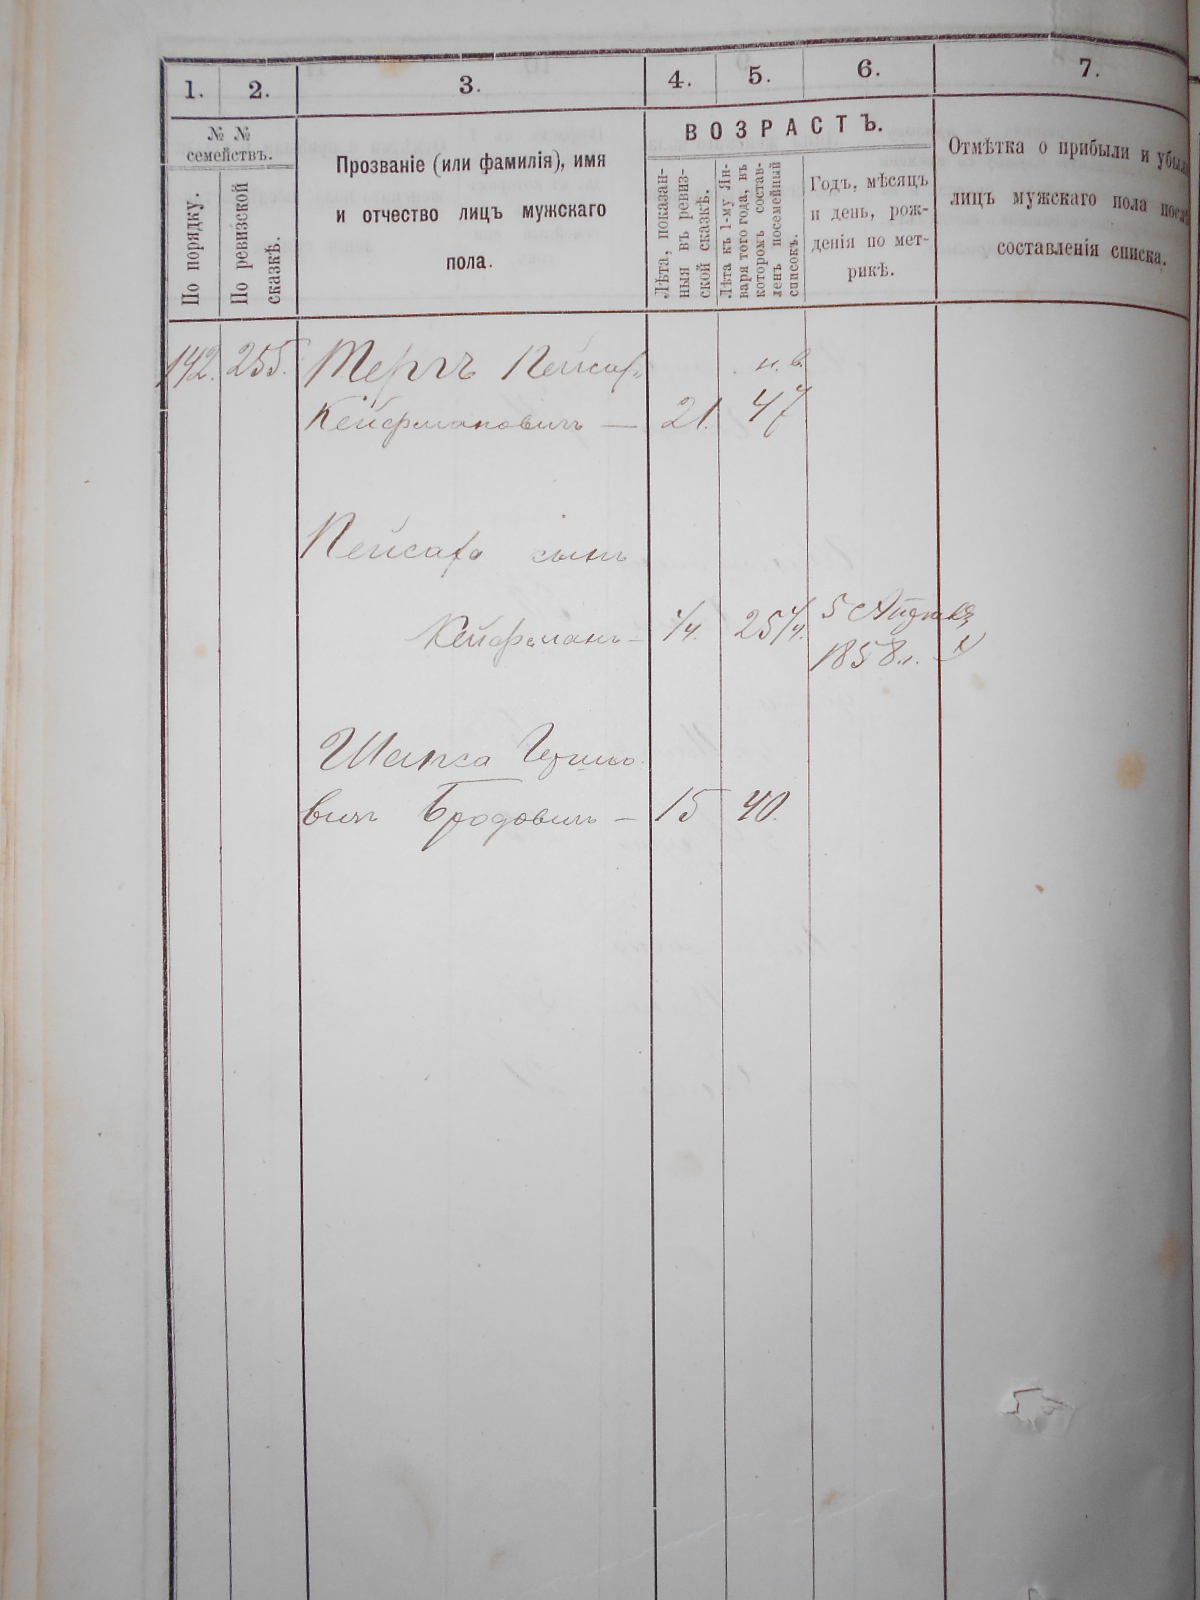 1. 2. 3. 4. 5. 6. 7.
№ №
семействъ.
По порядку.
По ревизской
сказкѣ.
Прозваніе (или фамилія), имя
и отчество лицъ мужскаго
пола.
ВОЗРАСТЪ.
Лѣта, показан-
ныя въ ревиз-
ской сказкѣ.
Лѣта къ 1-му Ян-
варя того года, въ
которомъ состав-
ленъ посемейный
списокъ.
Годъ, мѣсяцъ
и день, рож-
денія по мет-
рикѣ.
Отмѣтка о прибыли и убыли
лицъ мужскаго пола послѣ
составленія списка.
142. 255. Мергъ Пейсахъ н. в.
Кейфмановичъ — 21. 47
Пейсаха сынъ
Кейфманъ — 1/4. 25 1/4. 5
1858 г.
Шапса
вичъ Бродовичъ — 15 40.